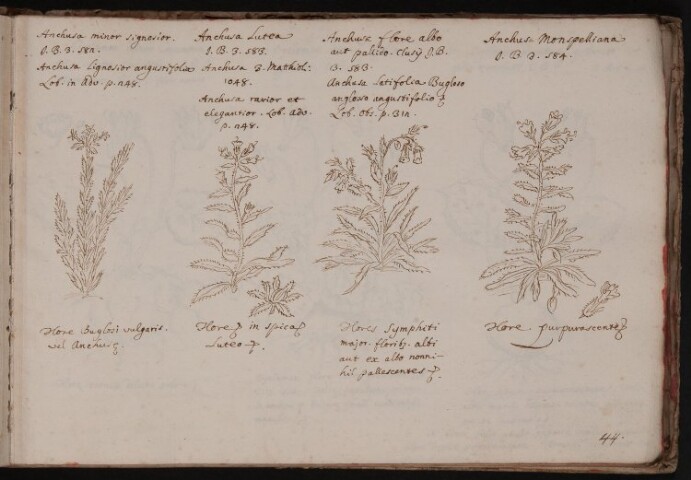 Anchusa minor lignosior.
J.B. 3. 582.
Anchusa lignosior angustifolia
Lob. in Adv. p. 248.
Anchusa Lutea
J.B. 3. 583.
Anchusa 3. Matthiol:
1048.
Anchusa rarior et
elegantior. Lob. Adv.
p. 248.
Anchusæ flore albo
aut pallido. Clusij J.B.
3. 583.
Anchusa latifolia Buglosso
angustifolio
Lob. Obs. p. 312.
Anchusa Monspelliana
J. B. 3. 584.
Flore Buglossi vulgaris.
vel Anchusæ.
Flore in spica
Luteo
Flores Sympheti
major. florib. albi
aut ex albo nonni-
hil pallescentes
Flore purpurascente
44.